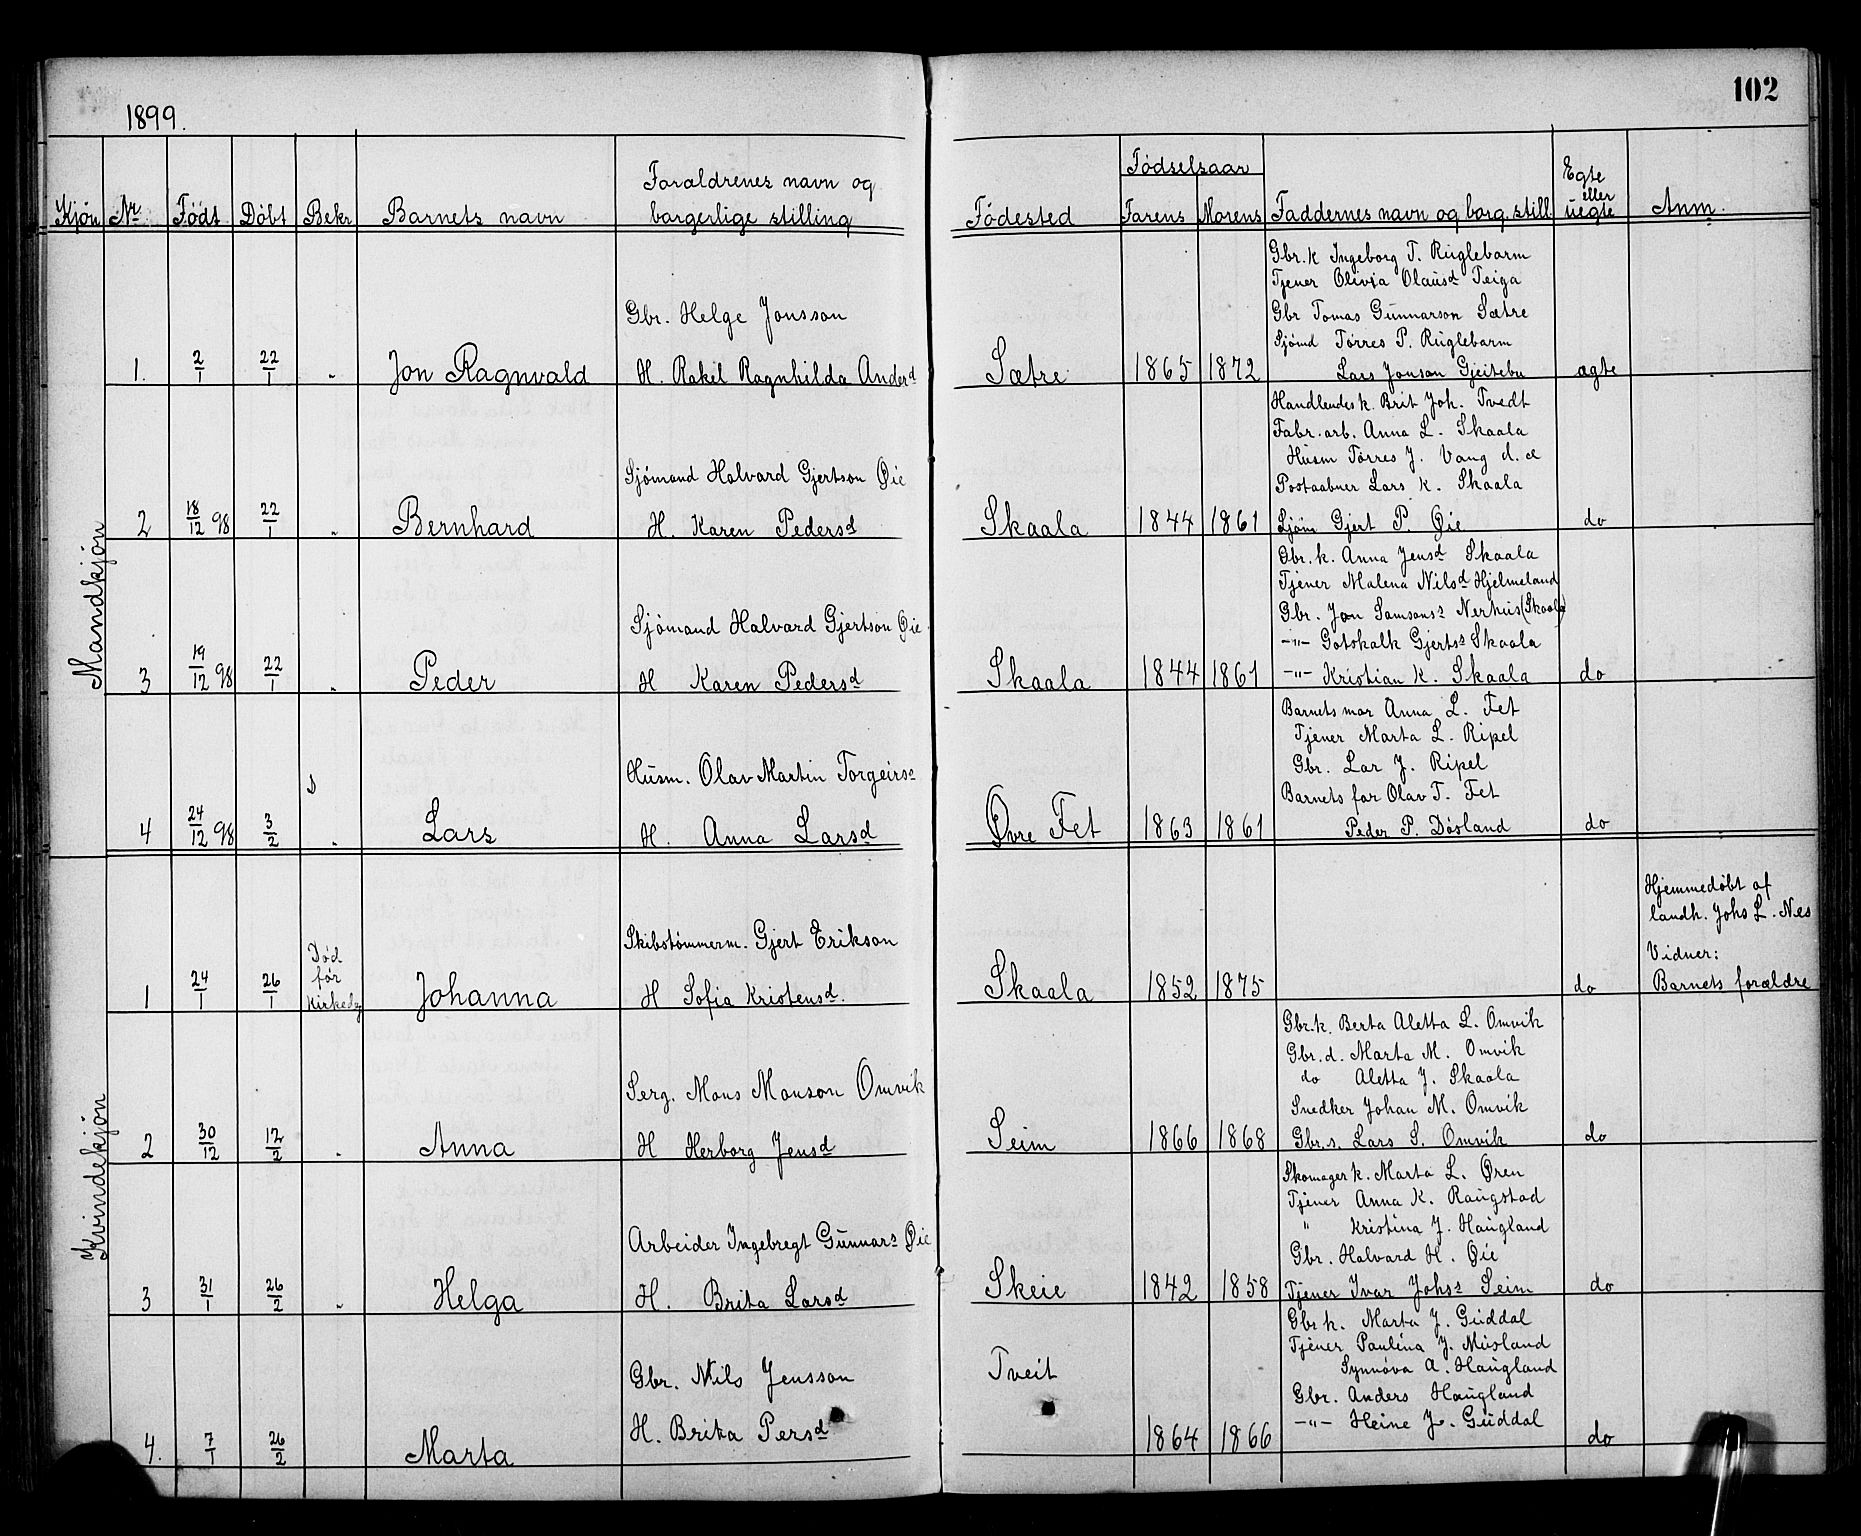 1899.
102
Kjøn Nr. Født Døbt Bekr Barnets navn Forældrenes navn og borgerlige stilling Fødested Fødselsaar Farens Morens Faddernes navn og borg. still. Egte eller uegte Anm.
Mandkjøn
Gbr. k Ingeborg T. Ruglebarm
Tjener Olivia Olausd Teiga
Gbr. Helge Jonsson
Gbr Tomas Gunnarson Sætre
Sjømd Tørres P. Ruglebarm
1. 2/1 22/1 " Jon Ragnvald H. Rakel Ragnhilda Andersd Sætre 1865 1872 Lars Jonson Gjeitebu ægte
Handlendes k. Brit Joh. Tvedt
Fabr. arb. Anna L. Skaala
Husm Tørres J. Vang d. æ
Sjømand Halvard Gjertson Øie
Postaabner Lars K. Skaala
2 18/12 98 22/1 " Bernhard H. Karen Pedersd Skaala 1844 1861 Sjøm Gjert P. Øie do
Gbr. k. Anna Jensd Skaala
Tjener Malena Nilsd Hjelmeland
Gbr. Jon Samsons Nerhus (Skaala)
Sjømand Halvard Gjertson Øie
-"- Gotskalk Gjerts Skaala
3 19/12 98 22/1 " Peder H Karen Pedersd Skaala 1844 1861 -"- Kristian K. Skaala do
Barnets mor Anna L. Fet
Tjener Marta L. Ripel
Gbr. Lar J. Ripel
Husm. Olav Martin Torgeirs
Barnets far Olav T. Fet
4 24/12 98 3/2 " Lars H. Anna Larsd Øvre Fet 1863 1861 Peder P. Døsland do
Kvindekjøn
Hjemmedøbt af
landh. Johs L. Nes
Skibstømmerm. Gjert Erikson
Vidner:
Død
før
1 24/1 26/1 Kirkedg Johanna H Sofia Kristensd. Skaala 1852 1875 do Barnets forældre
Gbr. k. Berta Aletta L. Omvik
Gbr. d. Marta M. Omvik
do Aletta J. Skaala
Serg. Mons Monson Omvik
Snedker Johan M. Omvik
2 30/12 12/2 " Anna H Herborg Jensd Seim 1866 1868 Gbr. s. Lars S. Omvik do
Skomager k. Marta L. Øren
Tjener Anna K. Raugstad
" Kristina J. Haugland
Arbeider Ingebregt Gunnars Øie
Gbr. Halvard H. Øie
3 31/1 26/2 " Helga H. Brita Larsd Skeie 1842 1858 Tjener Ivar Johs Seim do
Gbr k. Marta J. Guddal
Tjener Paulina J. Musland
Synnøva A. Haugland
Gbr. Nils Jensson Tveit
Gbr. Anders Haugland
-"- Heine J. Guddal
4. 7/1 26/2 Marta H. Brita Persd 1864 1866 do